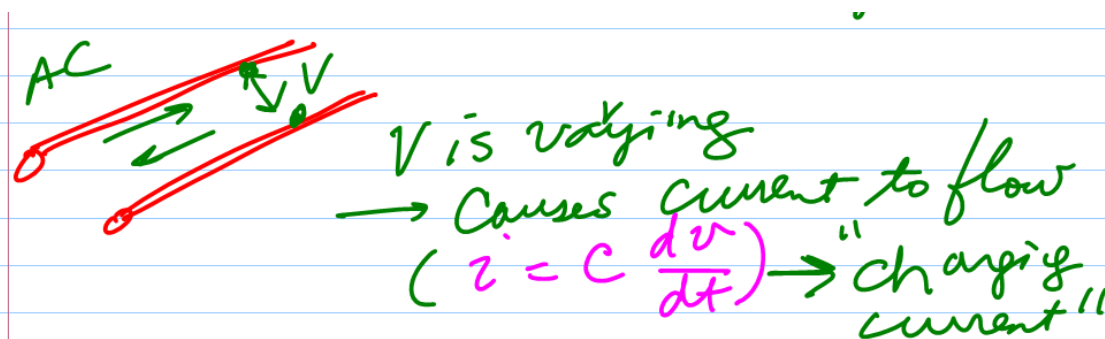 AC
V
V is varying
→ Causes current to flow
( i = C dv/dt ) → "charging
current"